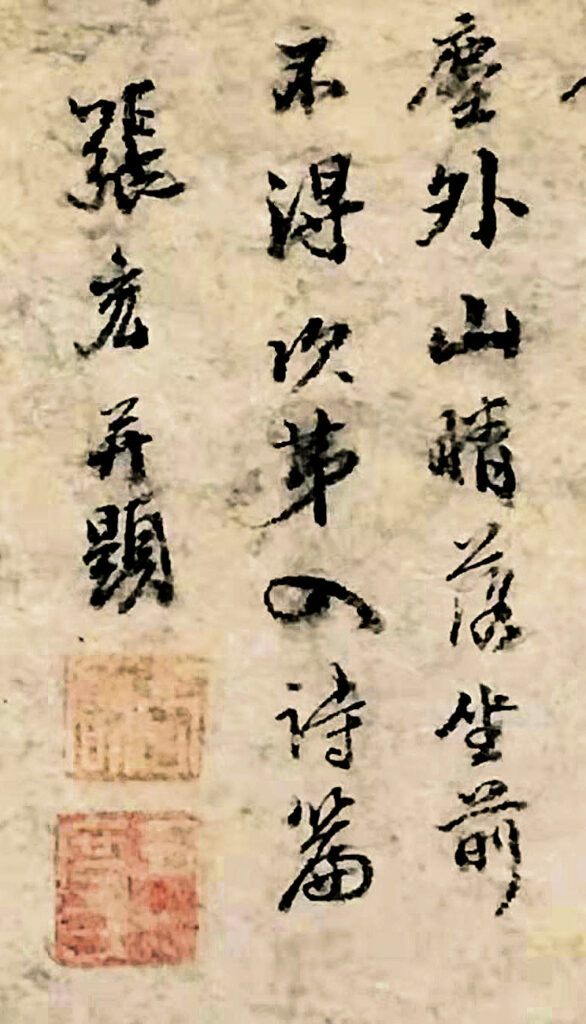 塵外山晴落坐前
不得次第入詩篇
張宏并題